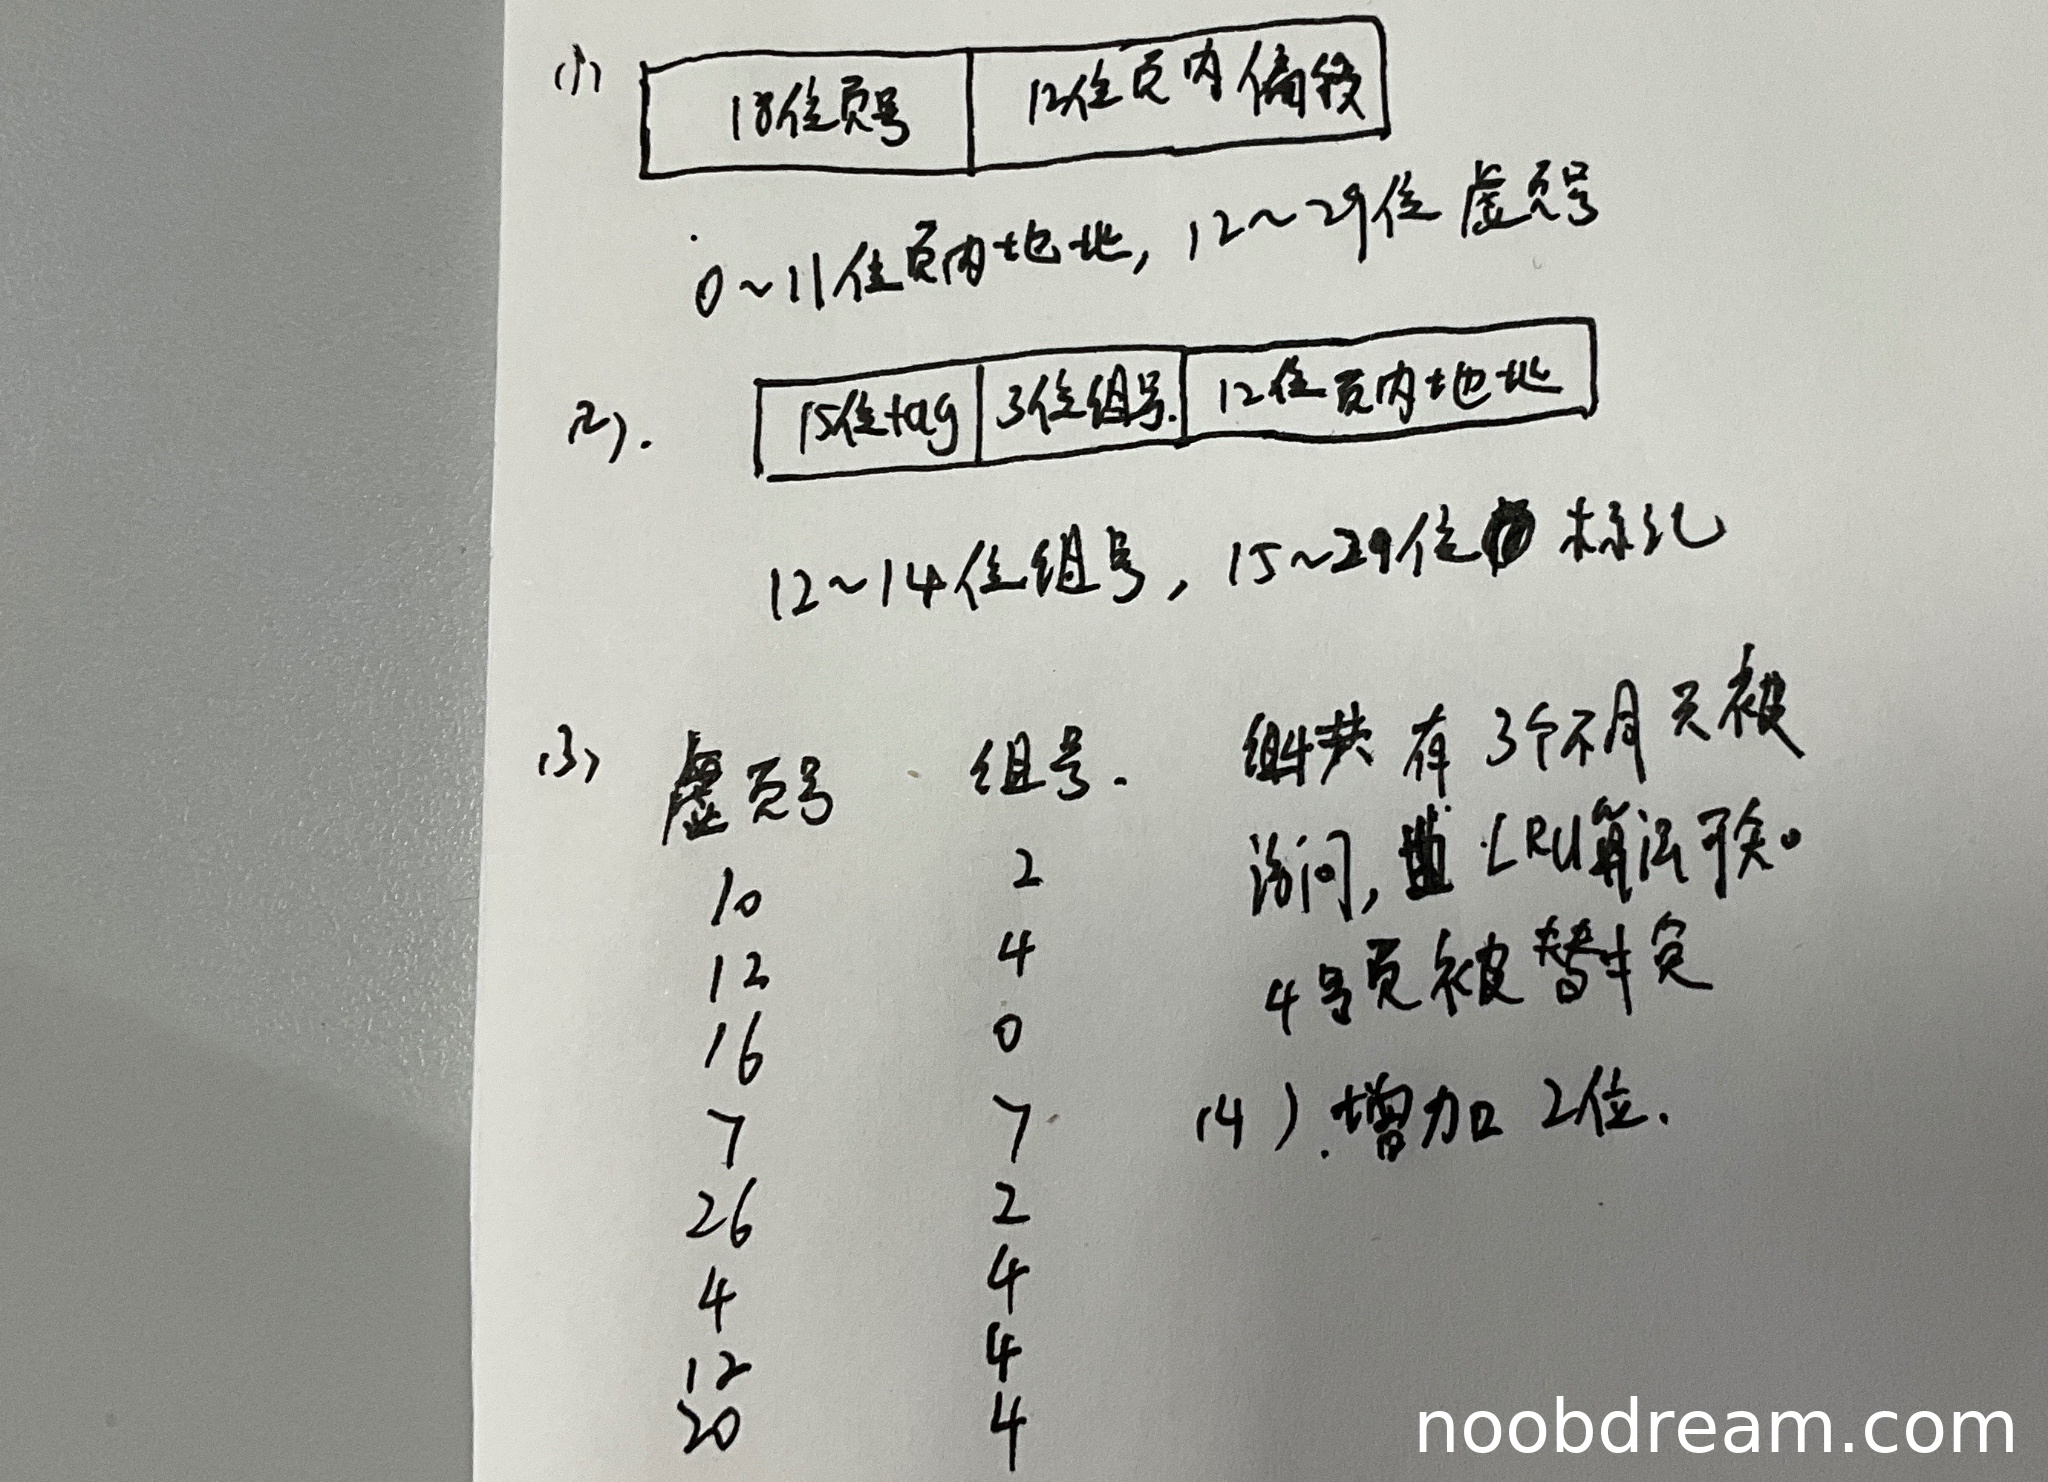 (1) 18位页号 12位页内偏移
0~11位页内地址, 12~29位虚页号
(2). 15位tag 3位组号. 12位页内地址
12~14位组号, 15~29位 标记
(3) 虚页号 组号.
10 2
12 4
16 0
7 7
26 2
4 4
12 4
20 4
组4共有3个不同页被
访问, LRU算法可知。
4号页被替换
(4). 增加2位.
noobdream.com